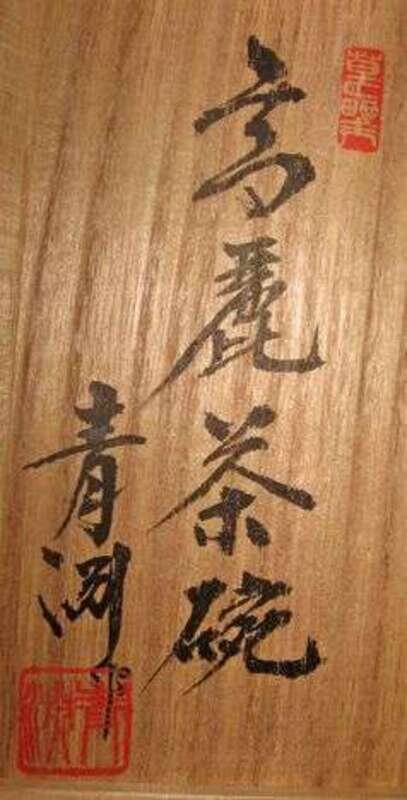 高麗茶碗
青淵